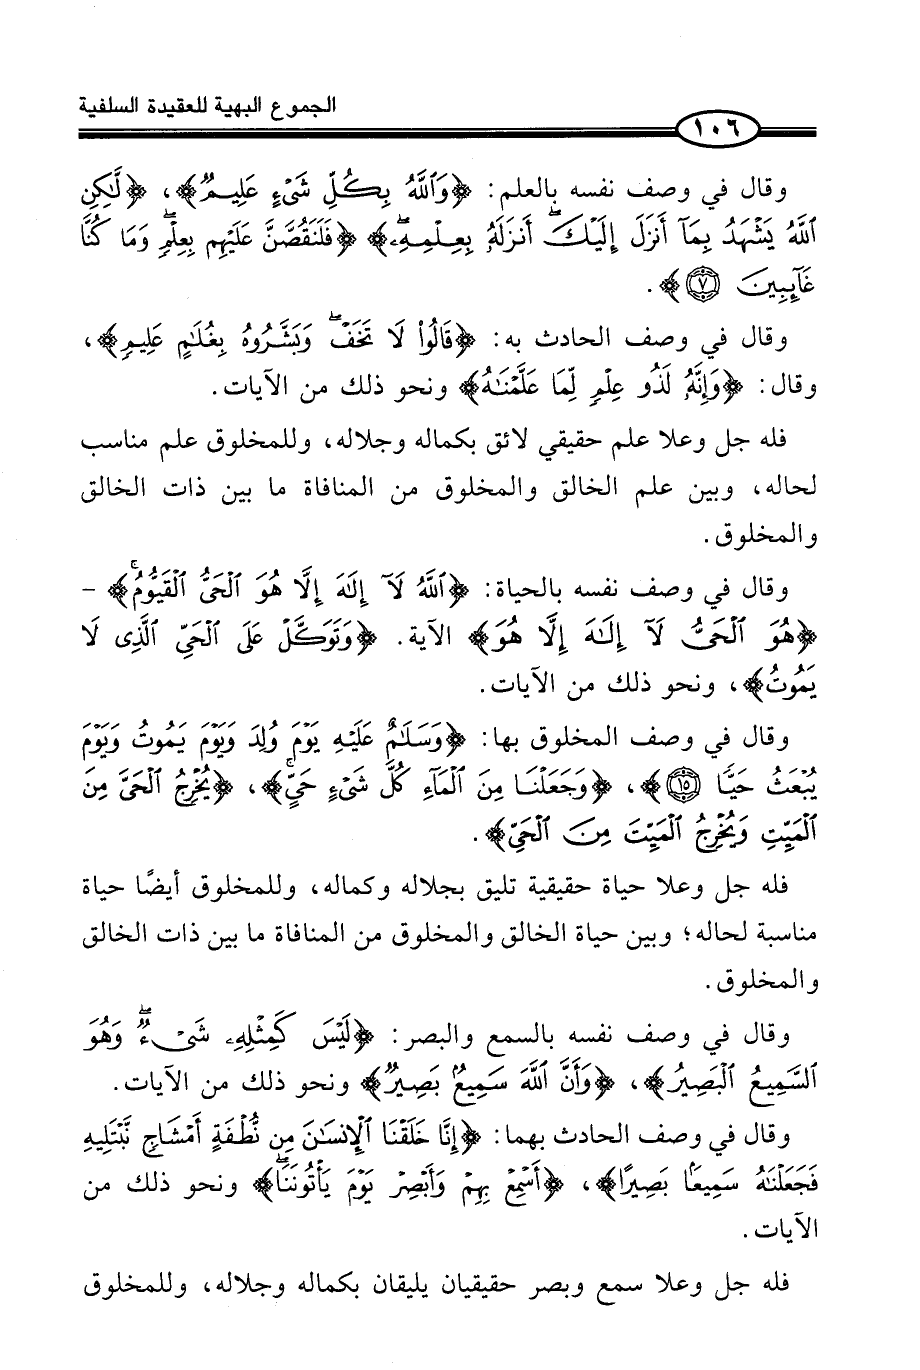 الجموع البهية للعقيدة السلفية
١٠٦
وقال في وصف نفسه بالعلم: ﴿وَٱللَّهُ بِكُلِّ شَىْءٍ عَلِيمٌ﴾، ﴿لَّٰكِنِ
ٱللَّهُ يَشْهَدُ بِمَآ أَنزَلَ إِلَيْكَ ۖ أَنزَلَهُۥ بِعِلْمِهِۦ ۖ﴾ ﴿فَلَنَقُصَّنَّ عَلَيْهِم بِعِلْمٍ ۖ وَمَا كُنَّا
غَآئِبِينَ ﴿٧﴾﴾.
وقال في وصف الحادث به: ﴿قَالُوا۟ لَا تَخَفْ ۖ وَبَشَّرُوهُ بِغُلَٰمٍ عَلِيمٍ﴾،
وقال: ﴿وَإِنَّهُۥ لَذُو عِلْمٍ لِّمَا عَلَّمْنَٰهُ﴾ ونحو ذلك من الآيات.
فله جل وعلا علم حقيقي لائق بكماله وجلاله، وللمخلوق علم مناسب
لحاله، وبين علم الخالق والمخلوق من المنافاة ما بين ذات الخالق
والمخلوق.
وقال في وصف نفسه بالحياة: ﴿ٱللَّهُ لَآ إِلَٰهَ إِلَّا هُوَ ٱلْحَىُّ ٱلْقَيُّومُ ۚ﴾ -
﴿هُوَ ٱلْحَىُّ لَآ إِلَٰهَ إِلَّا هُوَ﴾ الآية. ﴿وَتَوَكَّلْ عَلَى ٱلْحَىِّ ٱلَّذِى لَا
يَمُوتُ﴾، ونحو ذلك من الآيات.
وقال في وصف المخلوق بها: ﴿وَسَلَٰمٌ عَلَيْهِ يَوْمَ وُلِدَ وَيَوْمَ يَمُوتُ وَيَوْمَ
يُبْعَثُ حَيًّا ﴿١٥﴾﴾، ﴿وَجَعَلْنَا مِنَ ٱلْمَآءِ كُلَّ شَىْءٍ حَىٍّ ۚ﴾، ﴿يُخْرِجُ ٱلْحَىَّ مِنَ
ٱلْمَيِّتِ وَيُخْرِجُ ٱلْمَيِّتَ مِنَ ٱلْحَىِّ﴾.
فله جل وعلا حياة حقيقية تليق بجلاله وكماله، وللمخلوق أيضًا حياة
مناسبة لحاله؛ وبين حياة الخالق والمخلوق من المنافاة ما بين ذات الخالق
والمخلوق.
وقال في وصف نفسه بالسمع والبصر: ﴿لَيْسَ كَمِثْلِهِۦ شَىْءٌ ۖ وَهُوَ
ٱلسَّمِيعُ ٱلْبَصِيرُ﴾، ﴿وَأَنَّ ٱللَّهَ سَمِيعٌۢ بَصِيرٌ﴾ ونحو ذلك من الآيات.
وقال في وصف الحادث بهما: ﴿إِنَّا خَلَقْنَا ٱلْإِنسَٰنَ مِن نُّطْفَةٍ أَمْشَاجٍ نَّبْتَلِيهِ
فَجَعَلْنَٰهُ سَمِيعًۢا بَصِيرًا﴾، ﴿أَسْمِعْ بِهِمْ وَأَبْصِرْ يَوْمَ يَأْتُونَنَا ۖ﴾ ونحو ذلك من
الآيات.
فله جل وعلا سمع وبصر حقيقيان يليقان بكماله وجلاله، وللمخلوق